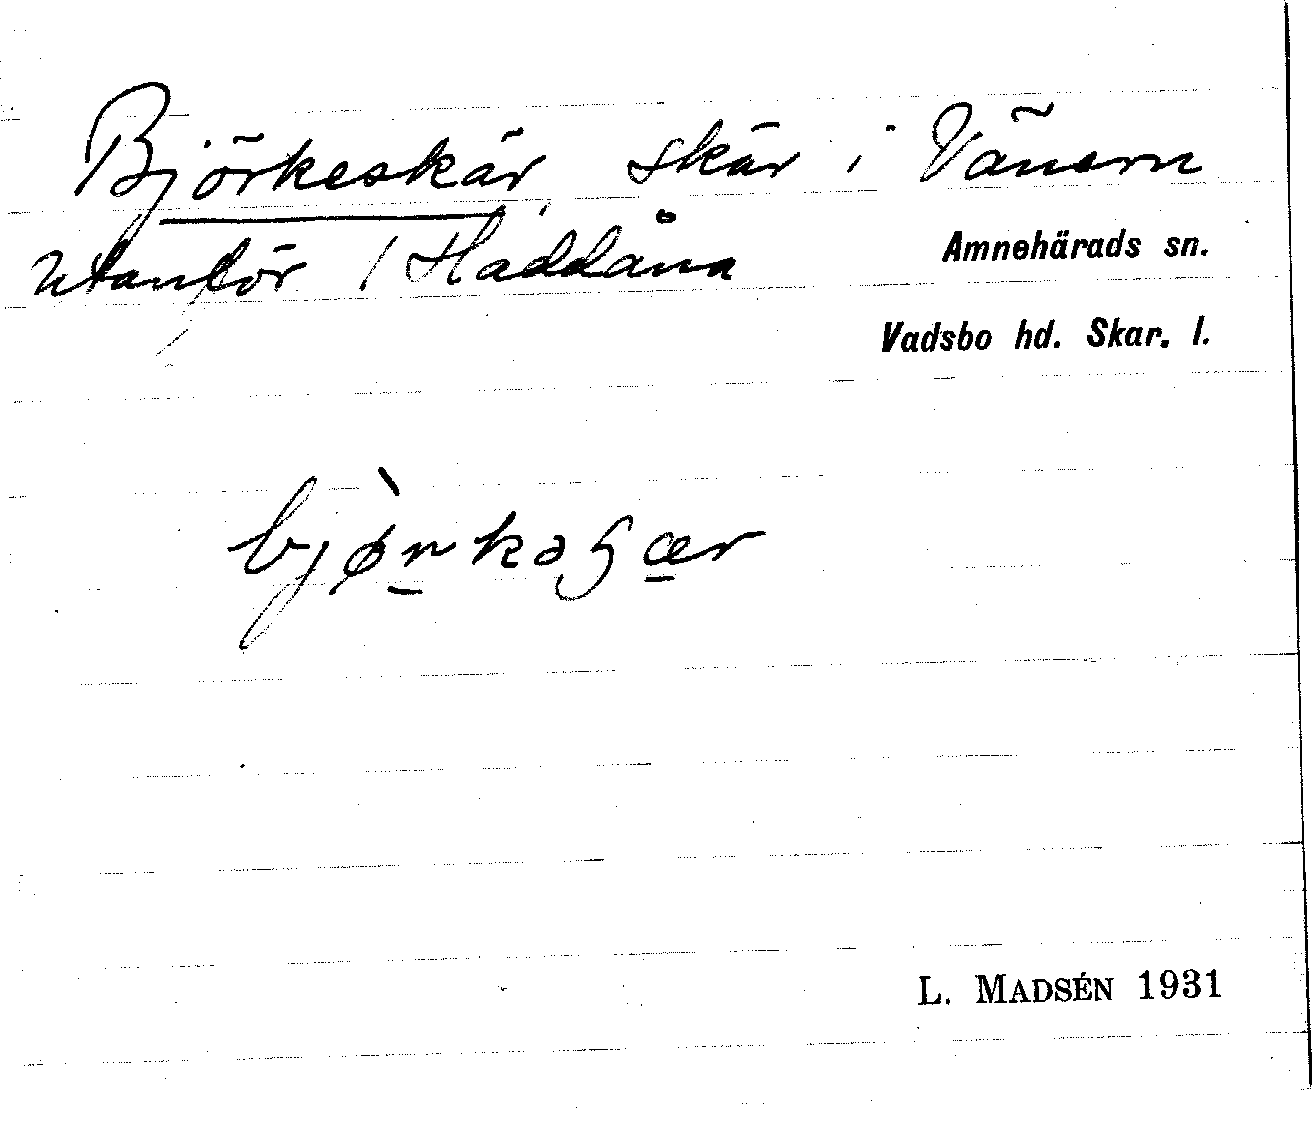 Björkeskär, skär i Vänern
utanför / Haddåna
Amnehärads sn.
Vadsbo hd. Skar. l.
L. MADSÉN 1931